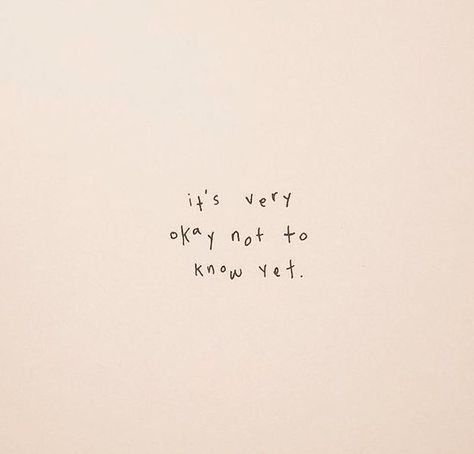 it's very
okay not to
know yet.